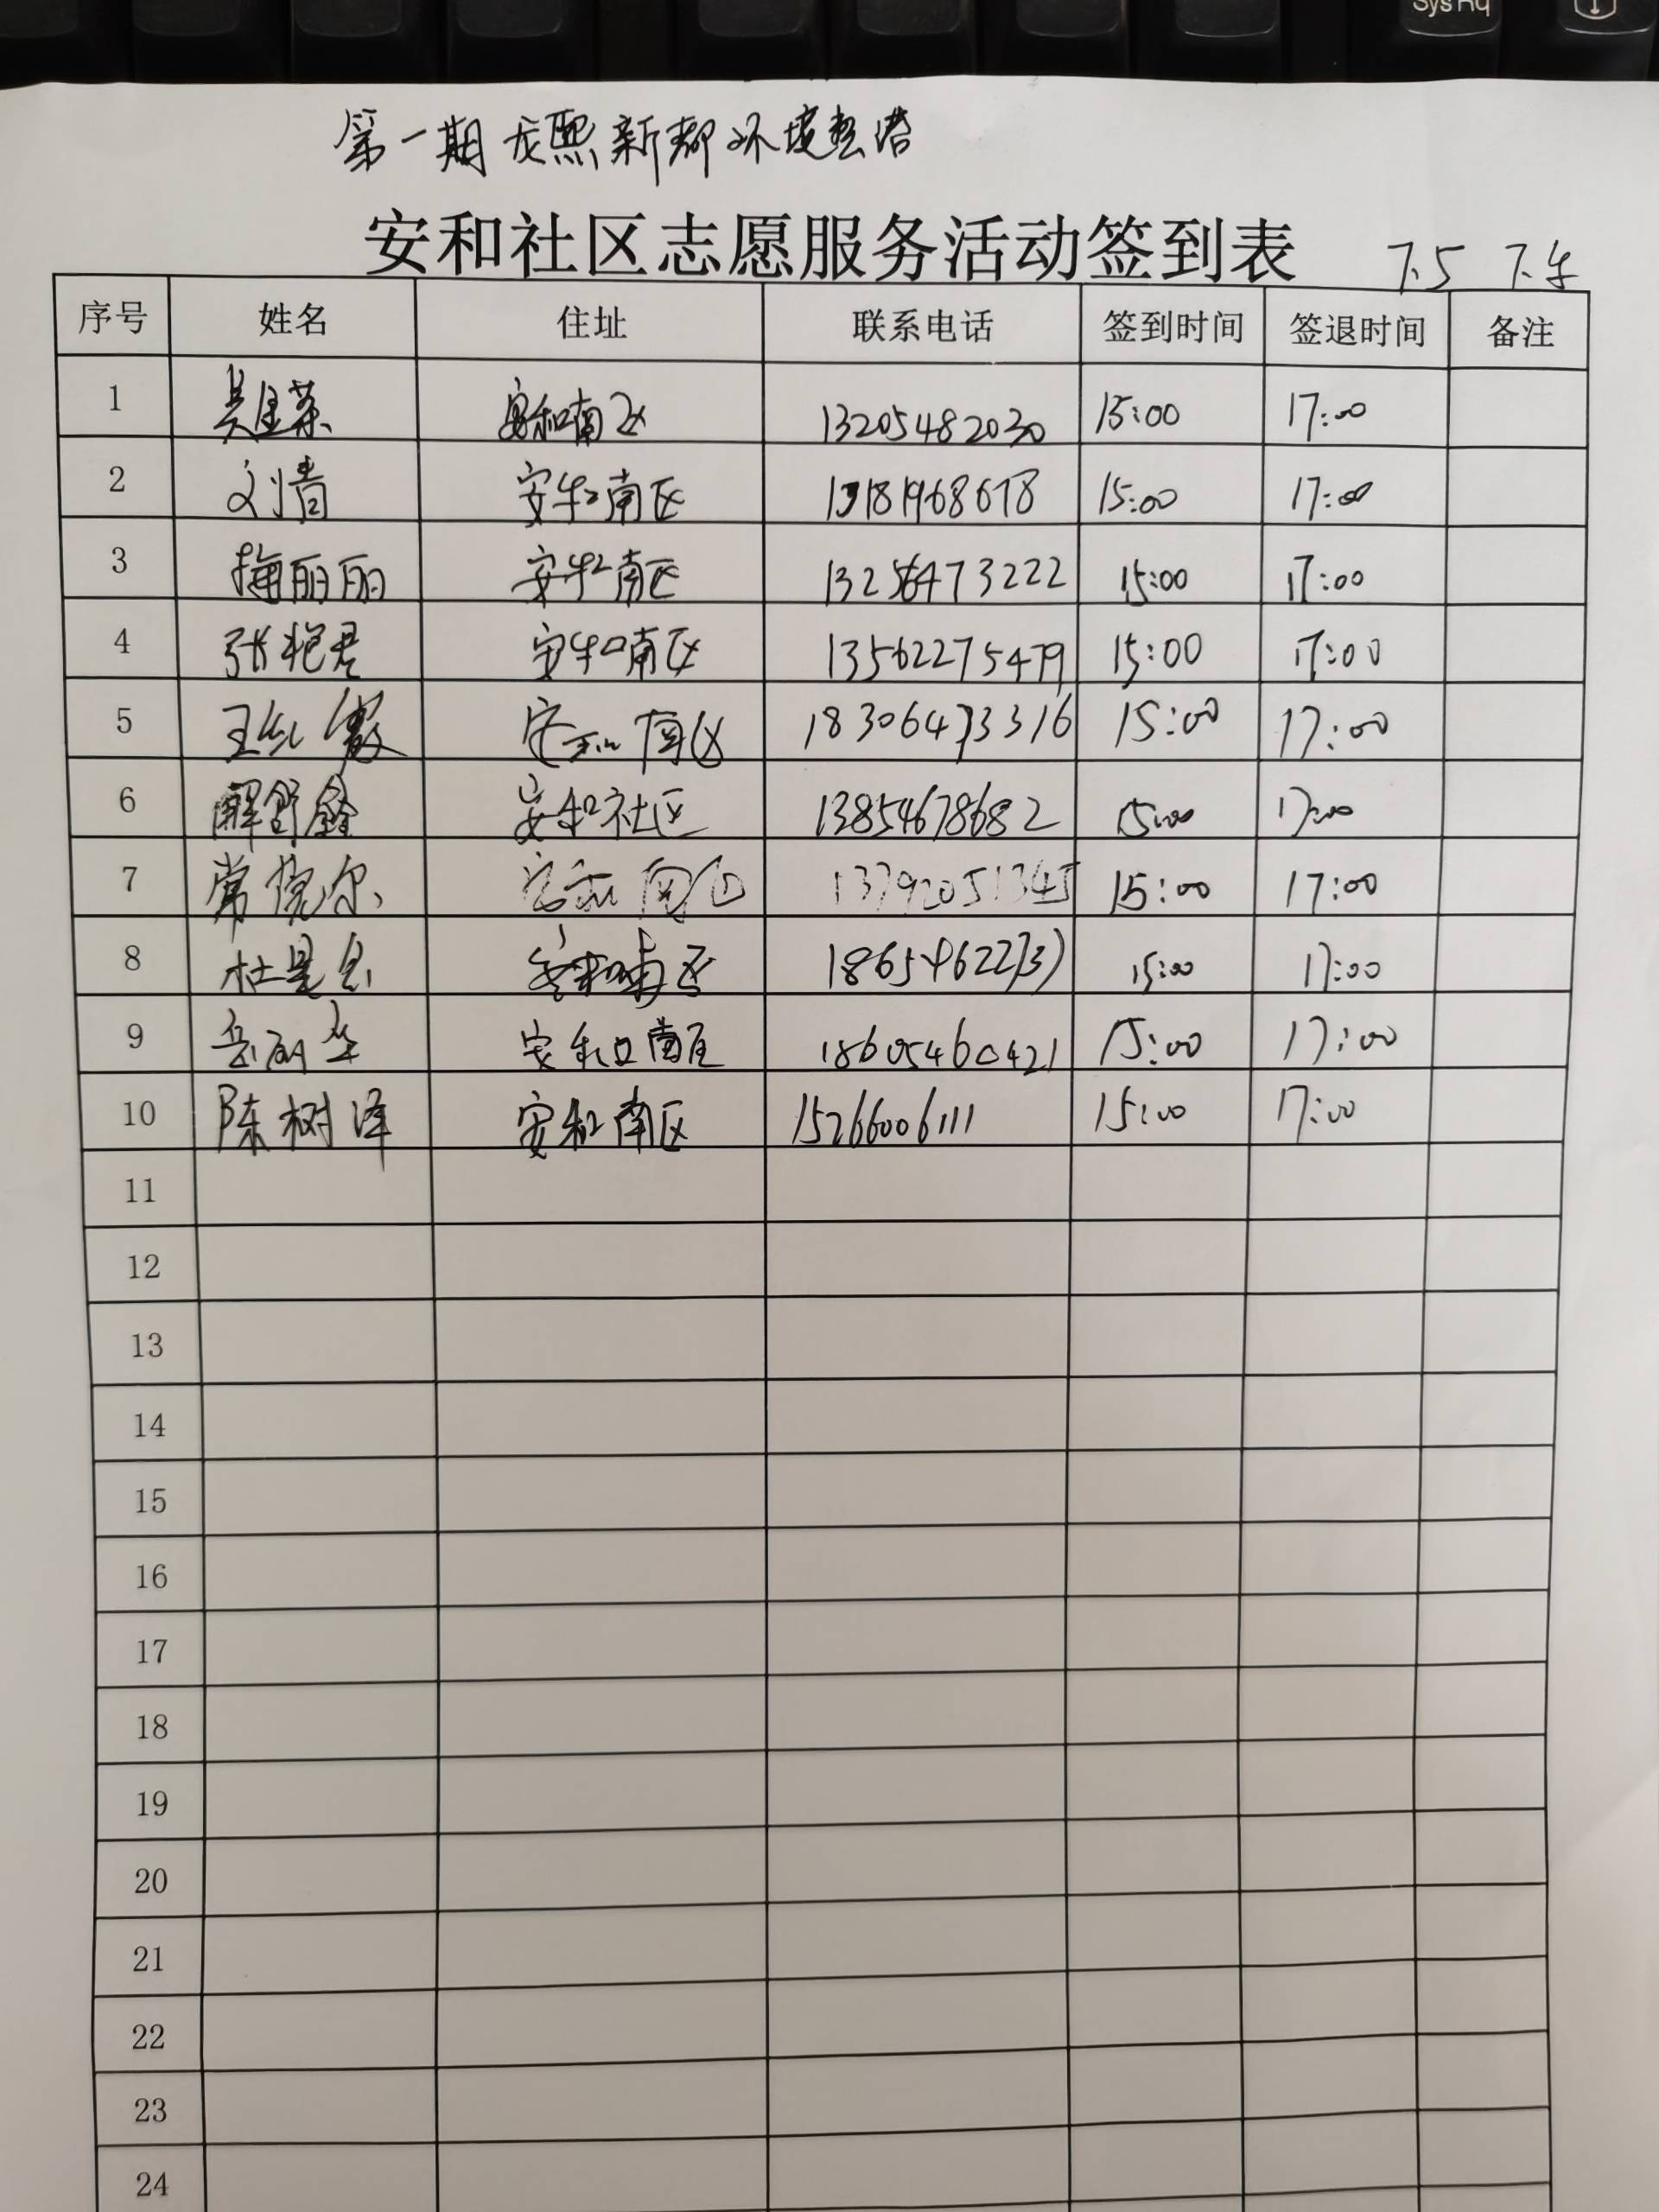 SysRq
第一期龙熙新都环境整治
安和社区志愿服务活动签到表 7.5 下午
序号 姓名 住址 联系电话 签到时间 签退时间 备注
1 安和南区 13205482030 15:00 17:00
2 刘青 安和南区 15:00 17:00
3 梅丽丽 安和南区 13256473222 15:00 17:00
4 张艳君 安和南区 13562275479 15:00 17:00
5 安和南区 18306473316 15:00 17:00
6 解舒鑫 安和社区 13854678682 15:00 17:00
7 常晓尔 安和南区 13792051345 15:00 17:00
8 安和南区 15:00 17:00
9 安和南区 18605460421 15:00 17:00
10 陈树泽 安和南区 15266006111 15:00 17:00
11
12
13
14
15
16
17
18
19
20
21
22
23
24